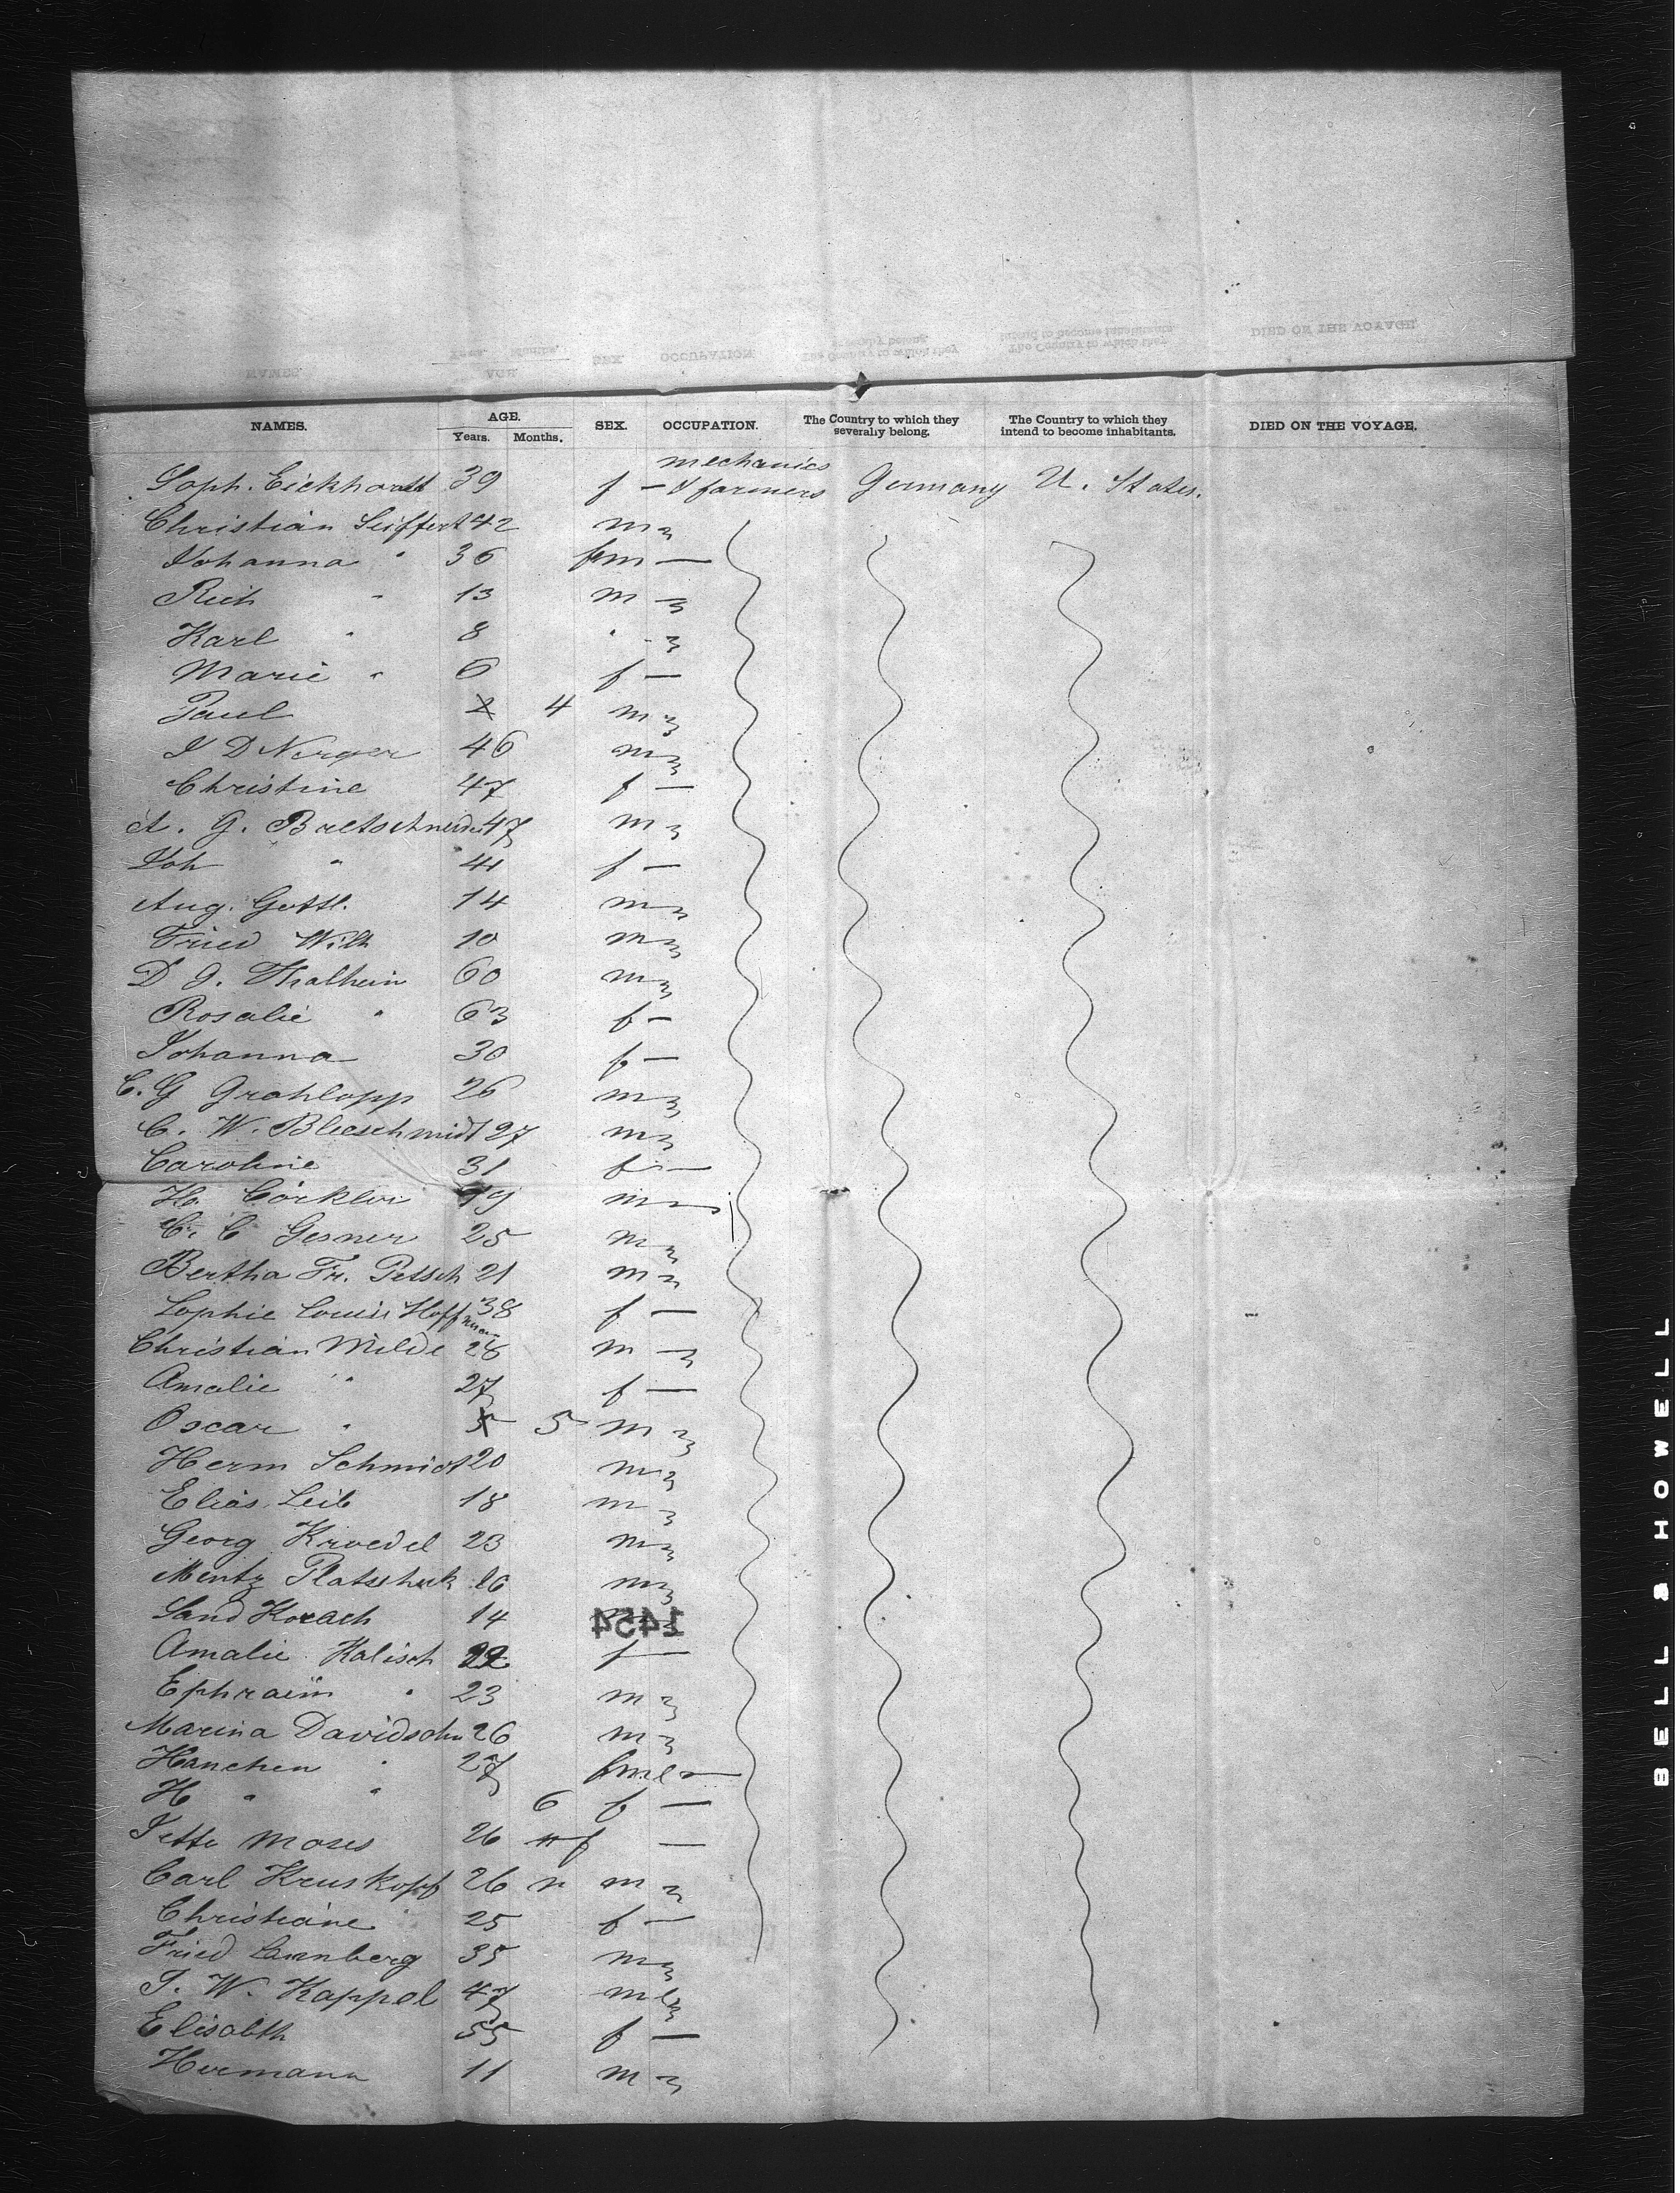 NAMES. AGE. Years. Months. SEX. OCCUPATION. The Country to which they severally belong. The Country to which they intend to become inhabitants. DIED ON THE VOYAGE.
mechanics
Soph. Eickhardt 39 f — & farmers Germany U. States.
Christian Seiffert 42 m
Johanna " 36 fem —
Rich " 13 m
Karl " 8 "
Marie " 6 f —
Paul 2 4 m
J D Nerger 46 m
Christine 47 f —
A. G. Bretschneider 47 m
Joh " 41 f —
Aug. Gottl. 14 m
Fried Wilh 10 m
D G. Thalheim 60 m
Rosalie " 63 f —
Johanna 30 f —
C. G Grahlopp 26 m
C. W. Bleeschmidt 27 m
Caroline 31 f —
H. 19 m
C. C Gesner 25 m
Bertha Fr. Petsch 21 m
Sophie Louis Hoffman 38 f —
Christian Milde 28 m
Amalie " 27 f —
Oscar " 5 5 m
Herm Schmidt 20 m
Elias Leib 18 m
Georg Kroedel 23 m
Platschek 16 m
Sand Korach 14 m
1454
Amalie Kalisch 22 f —
Ephraim " 23 m
Marina Davidsohn 26 m
Hanchen " 27 fml —
H " " 6 f —
Jette Moses 26 f —
Carl Kruskopf 26 n m
Christiane 25 f —
Fried 35 m
J. W. Kappel 47 m
Elisabth 55 f —
Hermann 11 m
BELL & HOWELL